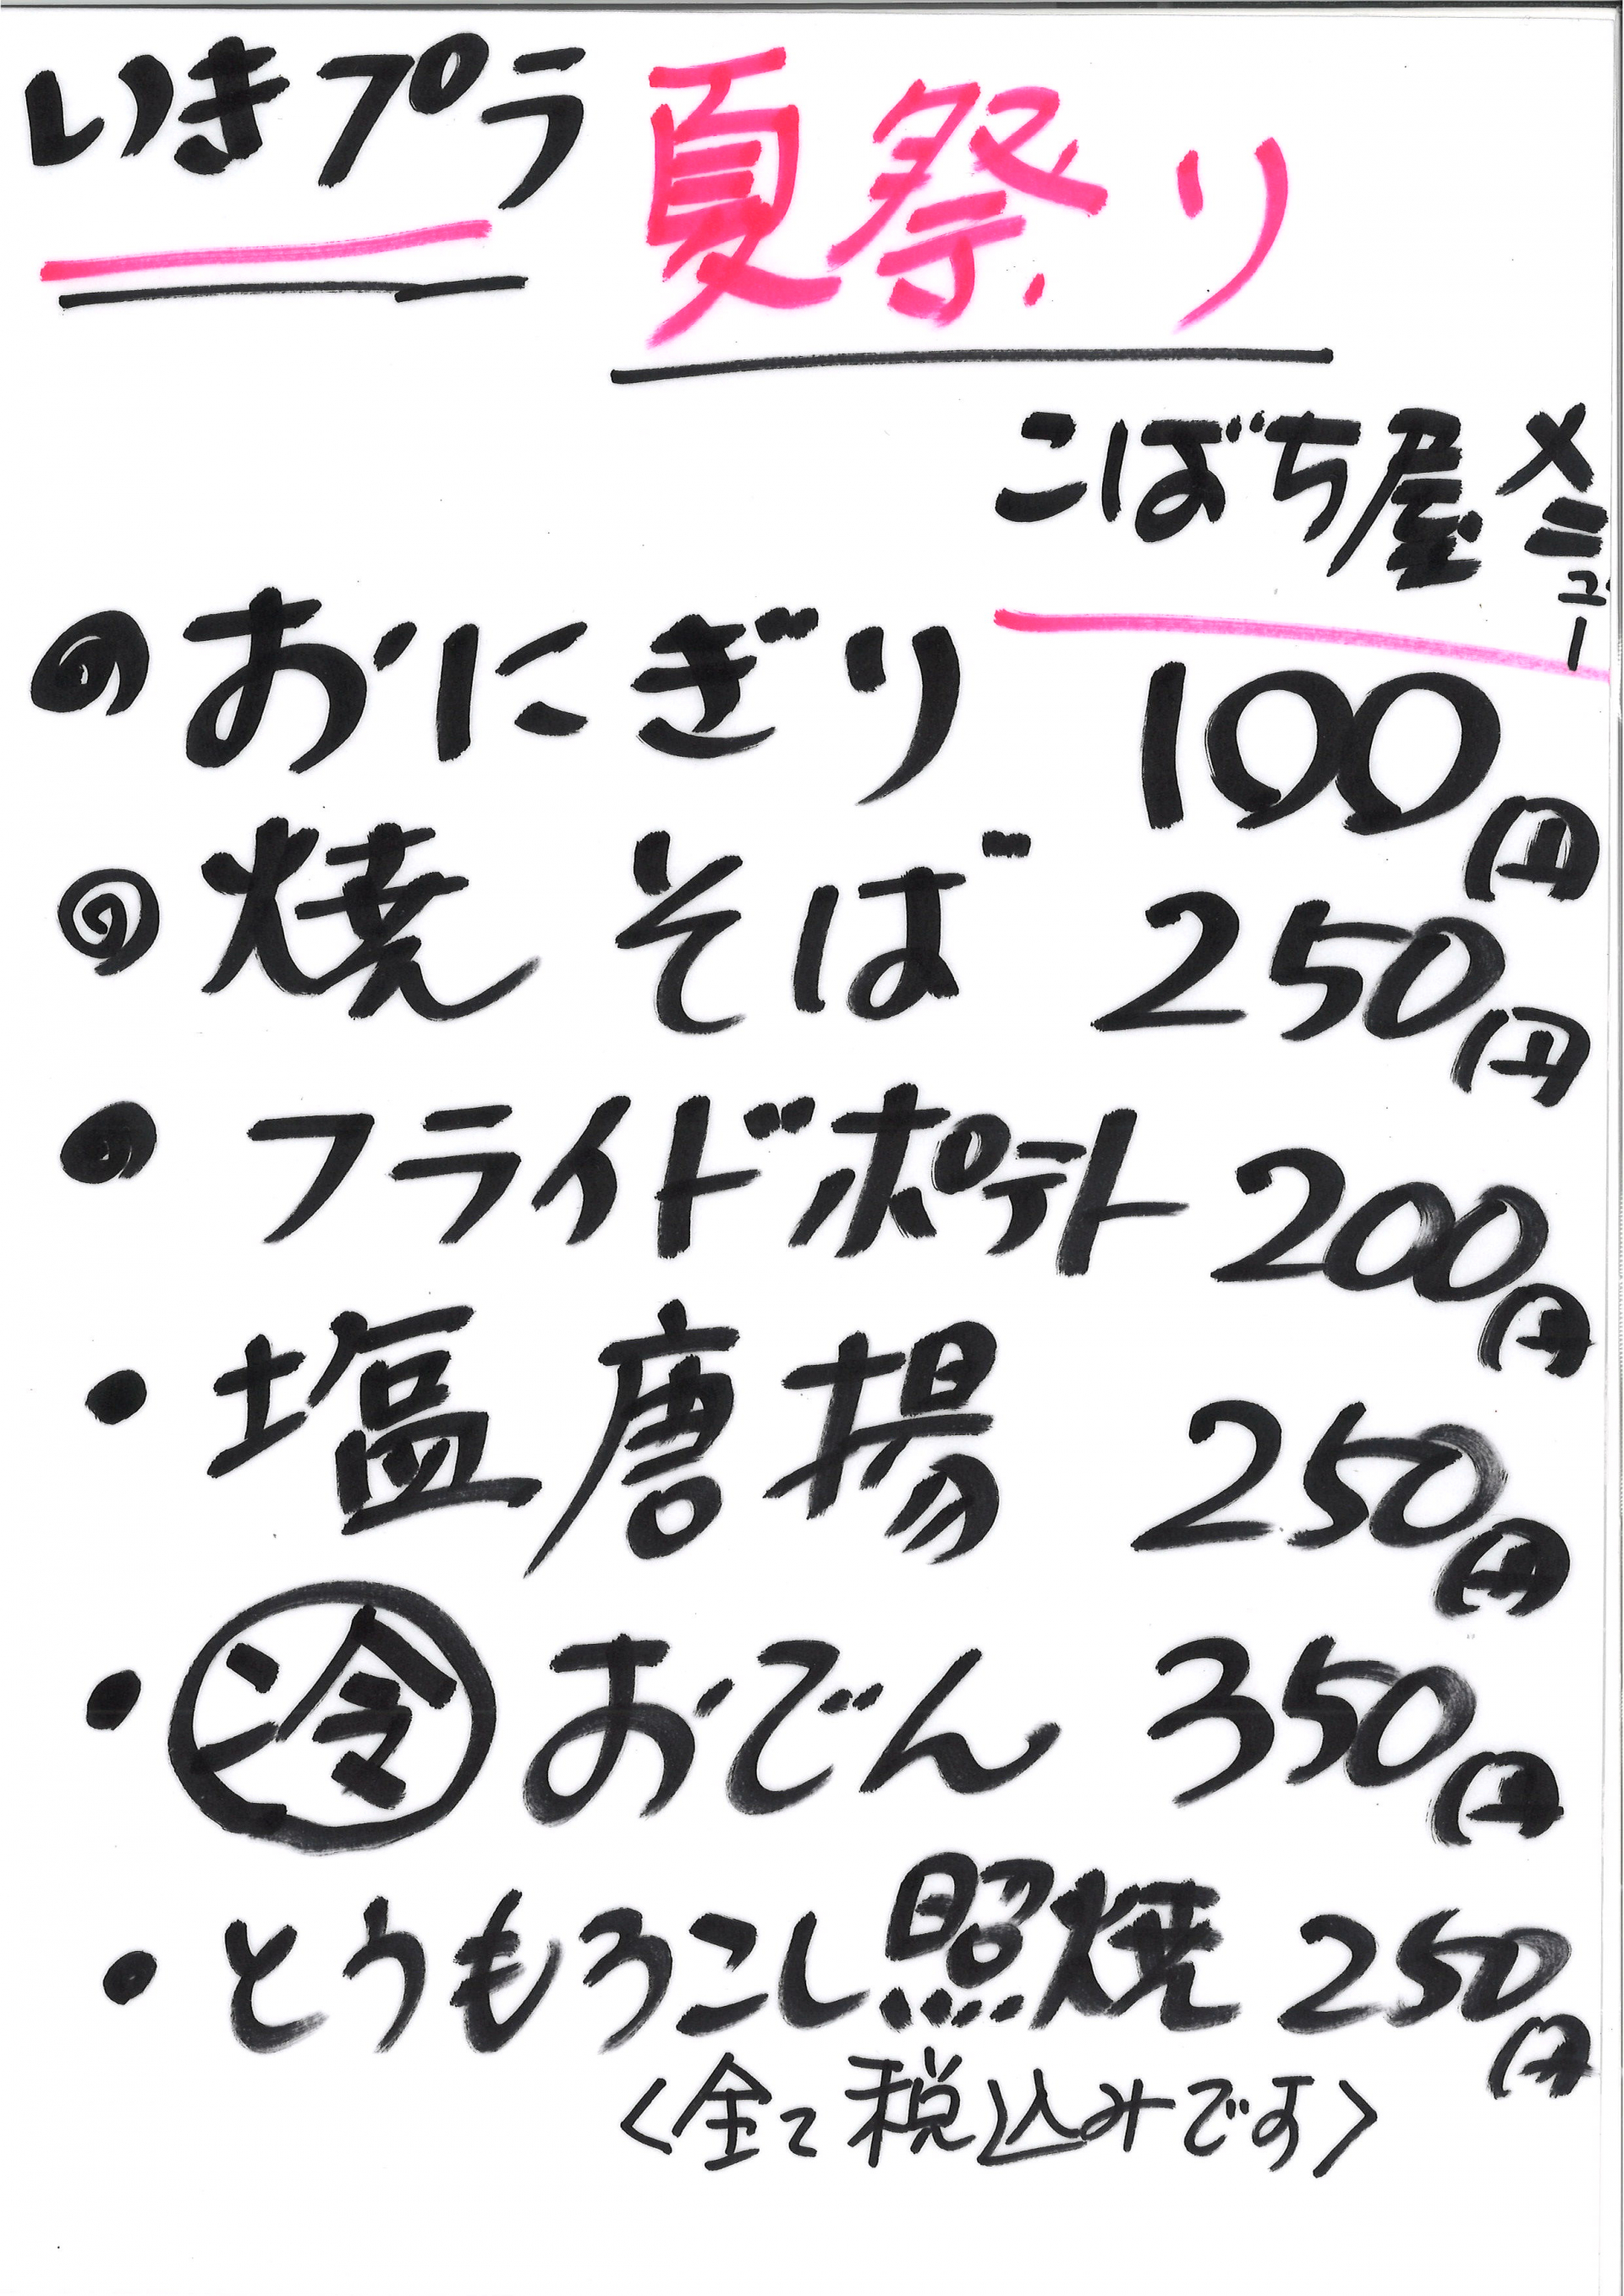 いきプラ 夏祭り
こばち屋 メニュー
おにぎり 100円
焼そば 250円
フライドポテト 200円
・塩唐揚 250円
・冷おでん 350円
・とうもろこし照焼 250円
<全て税込みです>